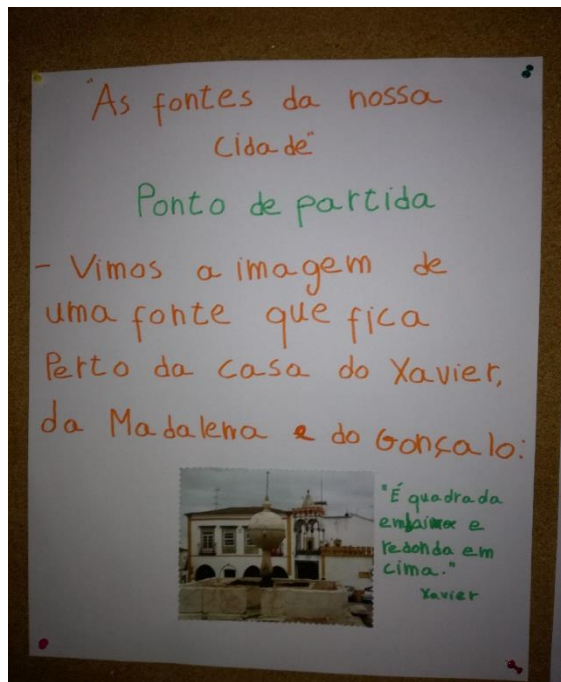 "As fontes da nossa
cidade"
Ponto de partida
- Vimos a imagem de
uma fonte que fica
Perto da casa do Xavier,
da Madalena e do Gonçalo:
"É quadrada
embaixo e
redonda em
cima."
Xavier